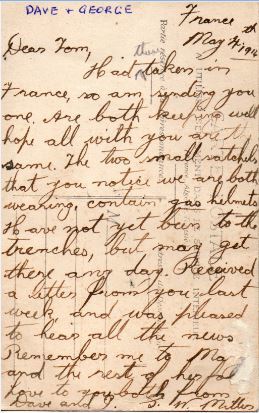 DAVE + GEORGE
France
May 4th, 1916
Dear Tom,
Had taken in
France, so am sending you
one. Are both keeping well
hope all with you are the
same. The two small satchels
that you notice we are both
wearing, contain gas helmets
Have not yet been to the
trenches, but may get
there any day. Received
a letter from you last
week and was pleased
to hear all the news
Remember me to Ma
and the rest of
love to you both from
Dave and S. W.